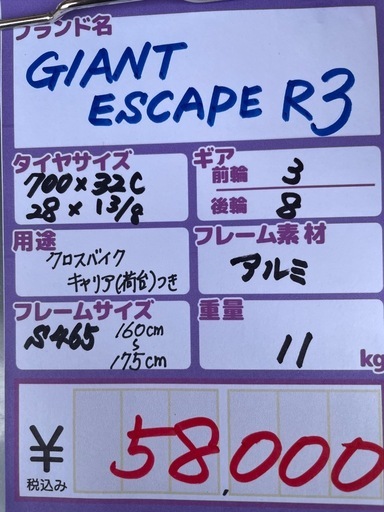 ブランド名
GIANT
ESCAPE R3
タイヤサイズ
700×32C
28×1 3/8
ギア
前輪 3
後輪 8
用途
クロスバイク
キャリア(荷台)つき
フレーム素材
アルミ
フレームサイズ
S465 160cm
~
175cm
重量
11 kg
¥ 58,000
税込み